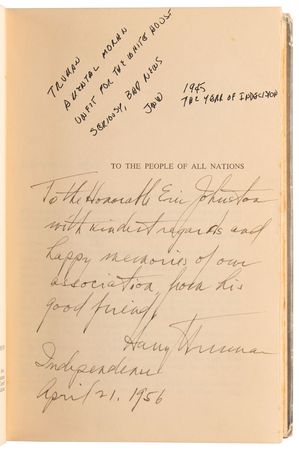 TRUMAN
A MENTAL MORAN
UNFIT FOR THE WHITE HOUSE
SERIOUSLY, BAD NEWS
JOHN
1945
THE YEAR OF INDECISION
TO THE PEOPLE OF ALL NATIONS
To the Honorable Eric Johnston
with kindest regards and
happy memories of our
association, from his
good friend,
Harry Truman
Independence
April 21, 1956